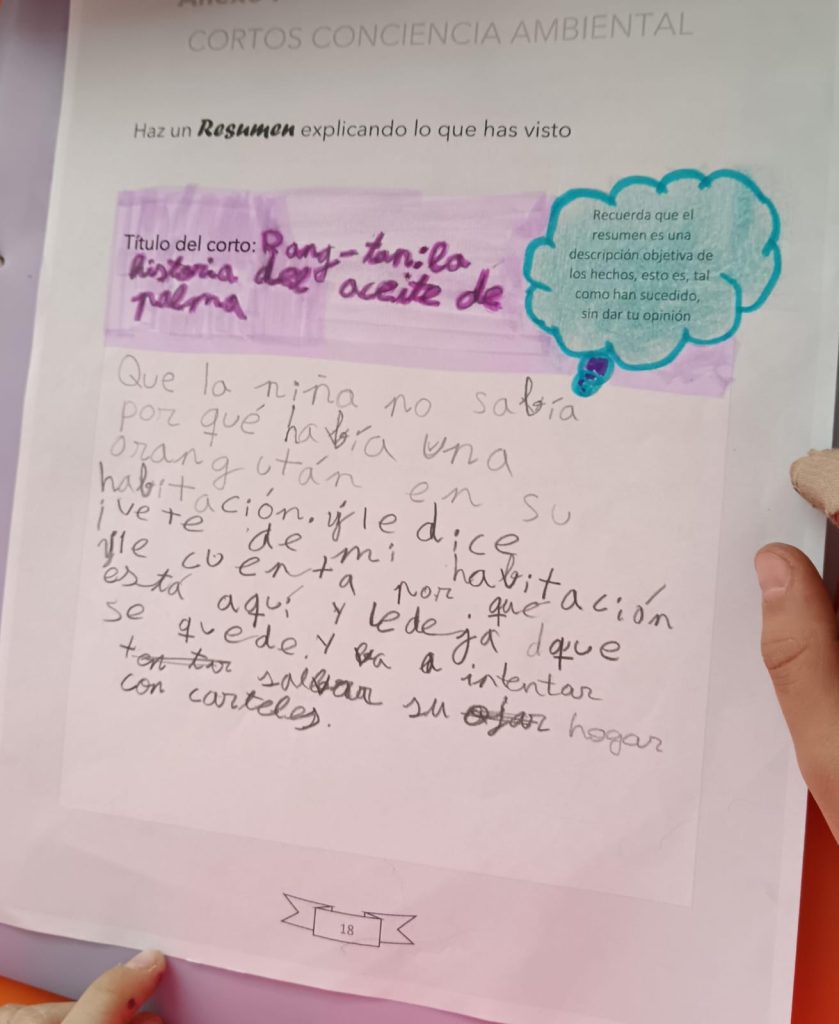 CORTOS CONCIENCIA AMBIENTAL
Haz un Resumen explicando lo que has visto
Título del corto: Rang-tan: la
historia del aceite de
palma
Recuerda que el
resumen es una
descripción objetiva de
los hechos, esto es, tal
como han sucedido,
sin dar tu opinión
Que la niña no sabía
por qué había una
orangután en su
habitación. y le dice
¡vete de mi habitación
y le cuenta por qué
está aquí y le deja que
se quede. y va a intentar
salvar su hogar
con carteles.
18